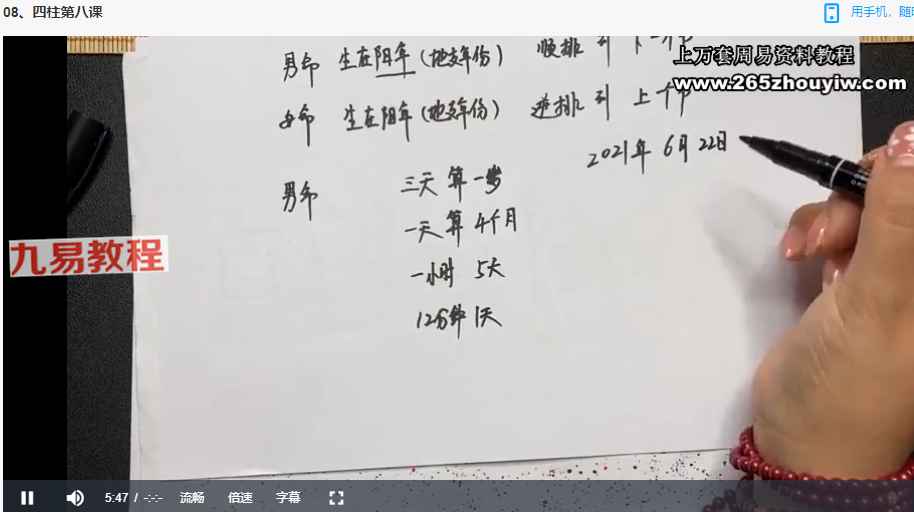 08、四柱第八课
用手机，随时
男命 生在阳年(地支年份) 顺排 到 下一个节
上万套周易资料教程
www.265zhouyiw.com
女命 生在阳年(地支年份) 逆排 到 上一个节
2021年 6月 22日
男命 三天 算 一岁
一天 算 4个月
九易教程
一小时 5天
12分钟 1天
5:47 / -:-:- 流畅 倍速 字幕